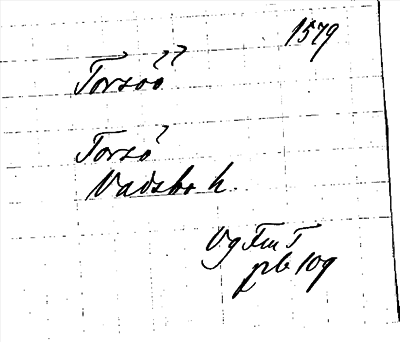 1579
Torsöö
Torsö
Vadsbo h.
Vg Fm T
119